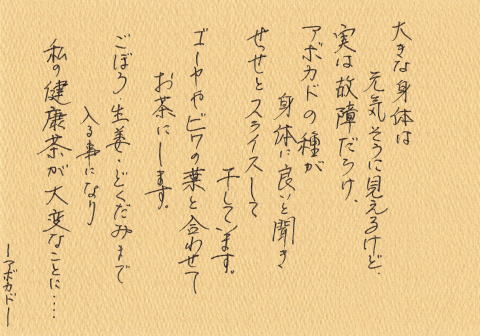 大きな身体は
元気そうに見えるけど、
実は故障だらけ、
アボカドの種が
身体に良いと聞き
せっせとスライスして
干しています。
ゴーヤやビワの葉と合わせて
お茶にします。
ごぼう・生姜・どくだみまで
入る事になり
私の健康茶が大変なことに‥‥
ーアボカドー